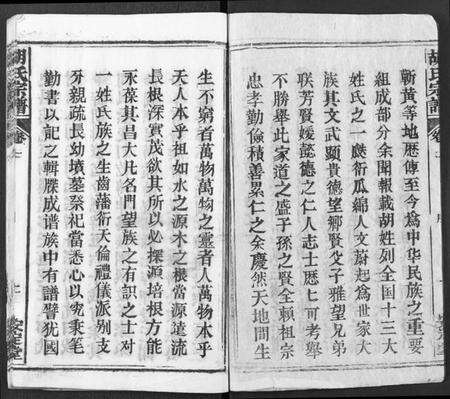 胡氏宗譜
卷之
蘄黃等地歷傳至今爲中华民族之重要
組成部分余閱報載胡姓列全国十三大
姓氏之一慶衍瓜綿人文蔚起爲世家大
族其文武顯貴德望鄉賢父子雅望兄弟
联芳賢媛懿德之仁人志士歷匕可考舉
不勝舉此家道之盛子孫之賢全賴祖宗
忠孝勤儉積善累仁之余慶然天地間生
生不窮者萬物萬物之靈者人萬物本乎
天人本乎祖如水之源木之根當源遠流
長根深實茂欲其所以必探源培根方能
永葆其昌大凡名門望族之有識之士对
一姓氏族之生齒藩衍天倫禮儀派別支
分親疏長幼墳墓祭祀当悉心以究秉笔
勤書以記之輯牒成谱族中有譜譬犹國
胡氏宗譜
卷之
上
安定堂